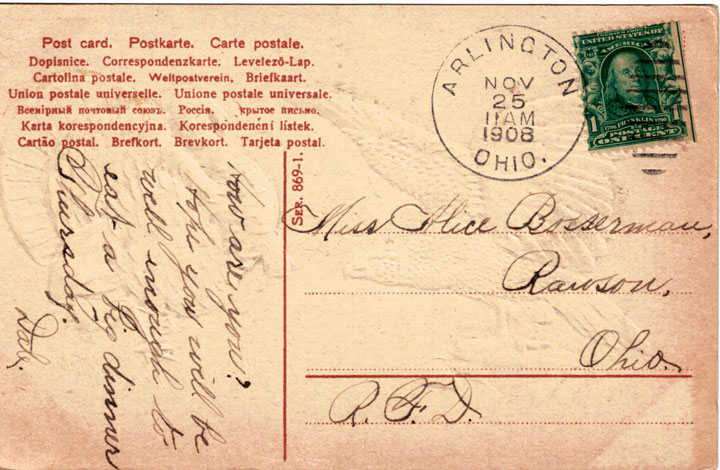 Post card. Postkarte. Carte postale.
Dopisnice. Correspondenzkarte. Levelező-Lap.
Cartolina postale. Weltpostverein. Briefkaart.
Union postale universelle. Unione postale universale.
Всемірный почтовый союзъ. Россія. крытое письмо.
Karta korespondencyjna. Korespondenční lístek.
Cartão postal. Brefkort. Brevkort. Tarjeta postal.
SER. 869-1.
How are you?
Hope you will be
well enough to
eat a big dinner
Thursday.
ARLINGTON
NOV
25
11AM
1908
OHIO.
UNITED STATES OF
AMERICA
1 FRANKLIN 1
POSTAGE
ONE CENT
Miss Alice Bosserman,
Rawson,
Ohio.
R.F.D.